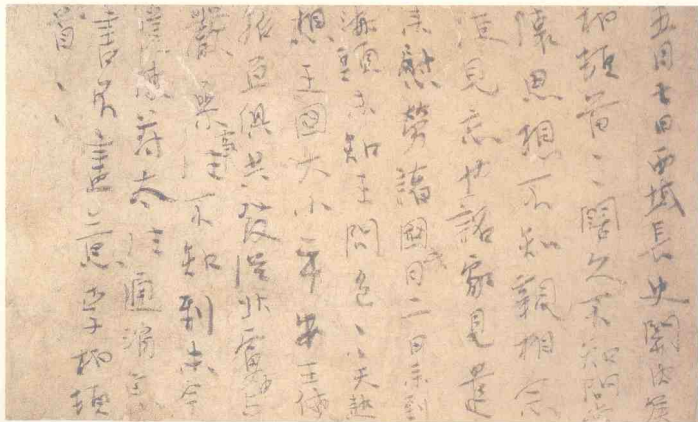 五月七日西域長史關内侯
柏頓首〻闊久不知問常
懷思想不知親相念
便見忘也詔家見遣
來慰勞諸國月二日來到
海頭未知王問邑〻天熱
想王國大小平安王使
招亘俱共發從北虜中與
嚴參事往不知到未今
遣使苻太往通消息
書不盡意李柏頓
首〻